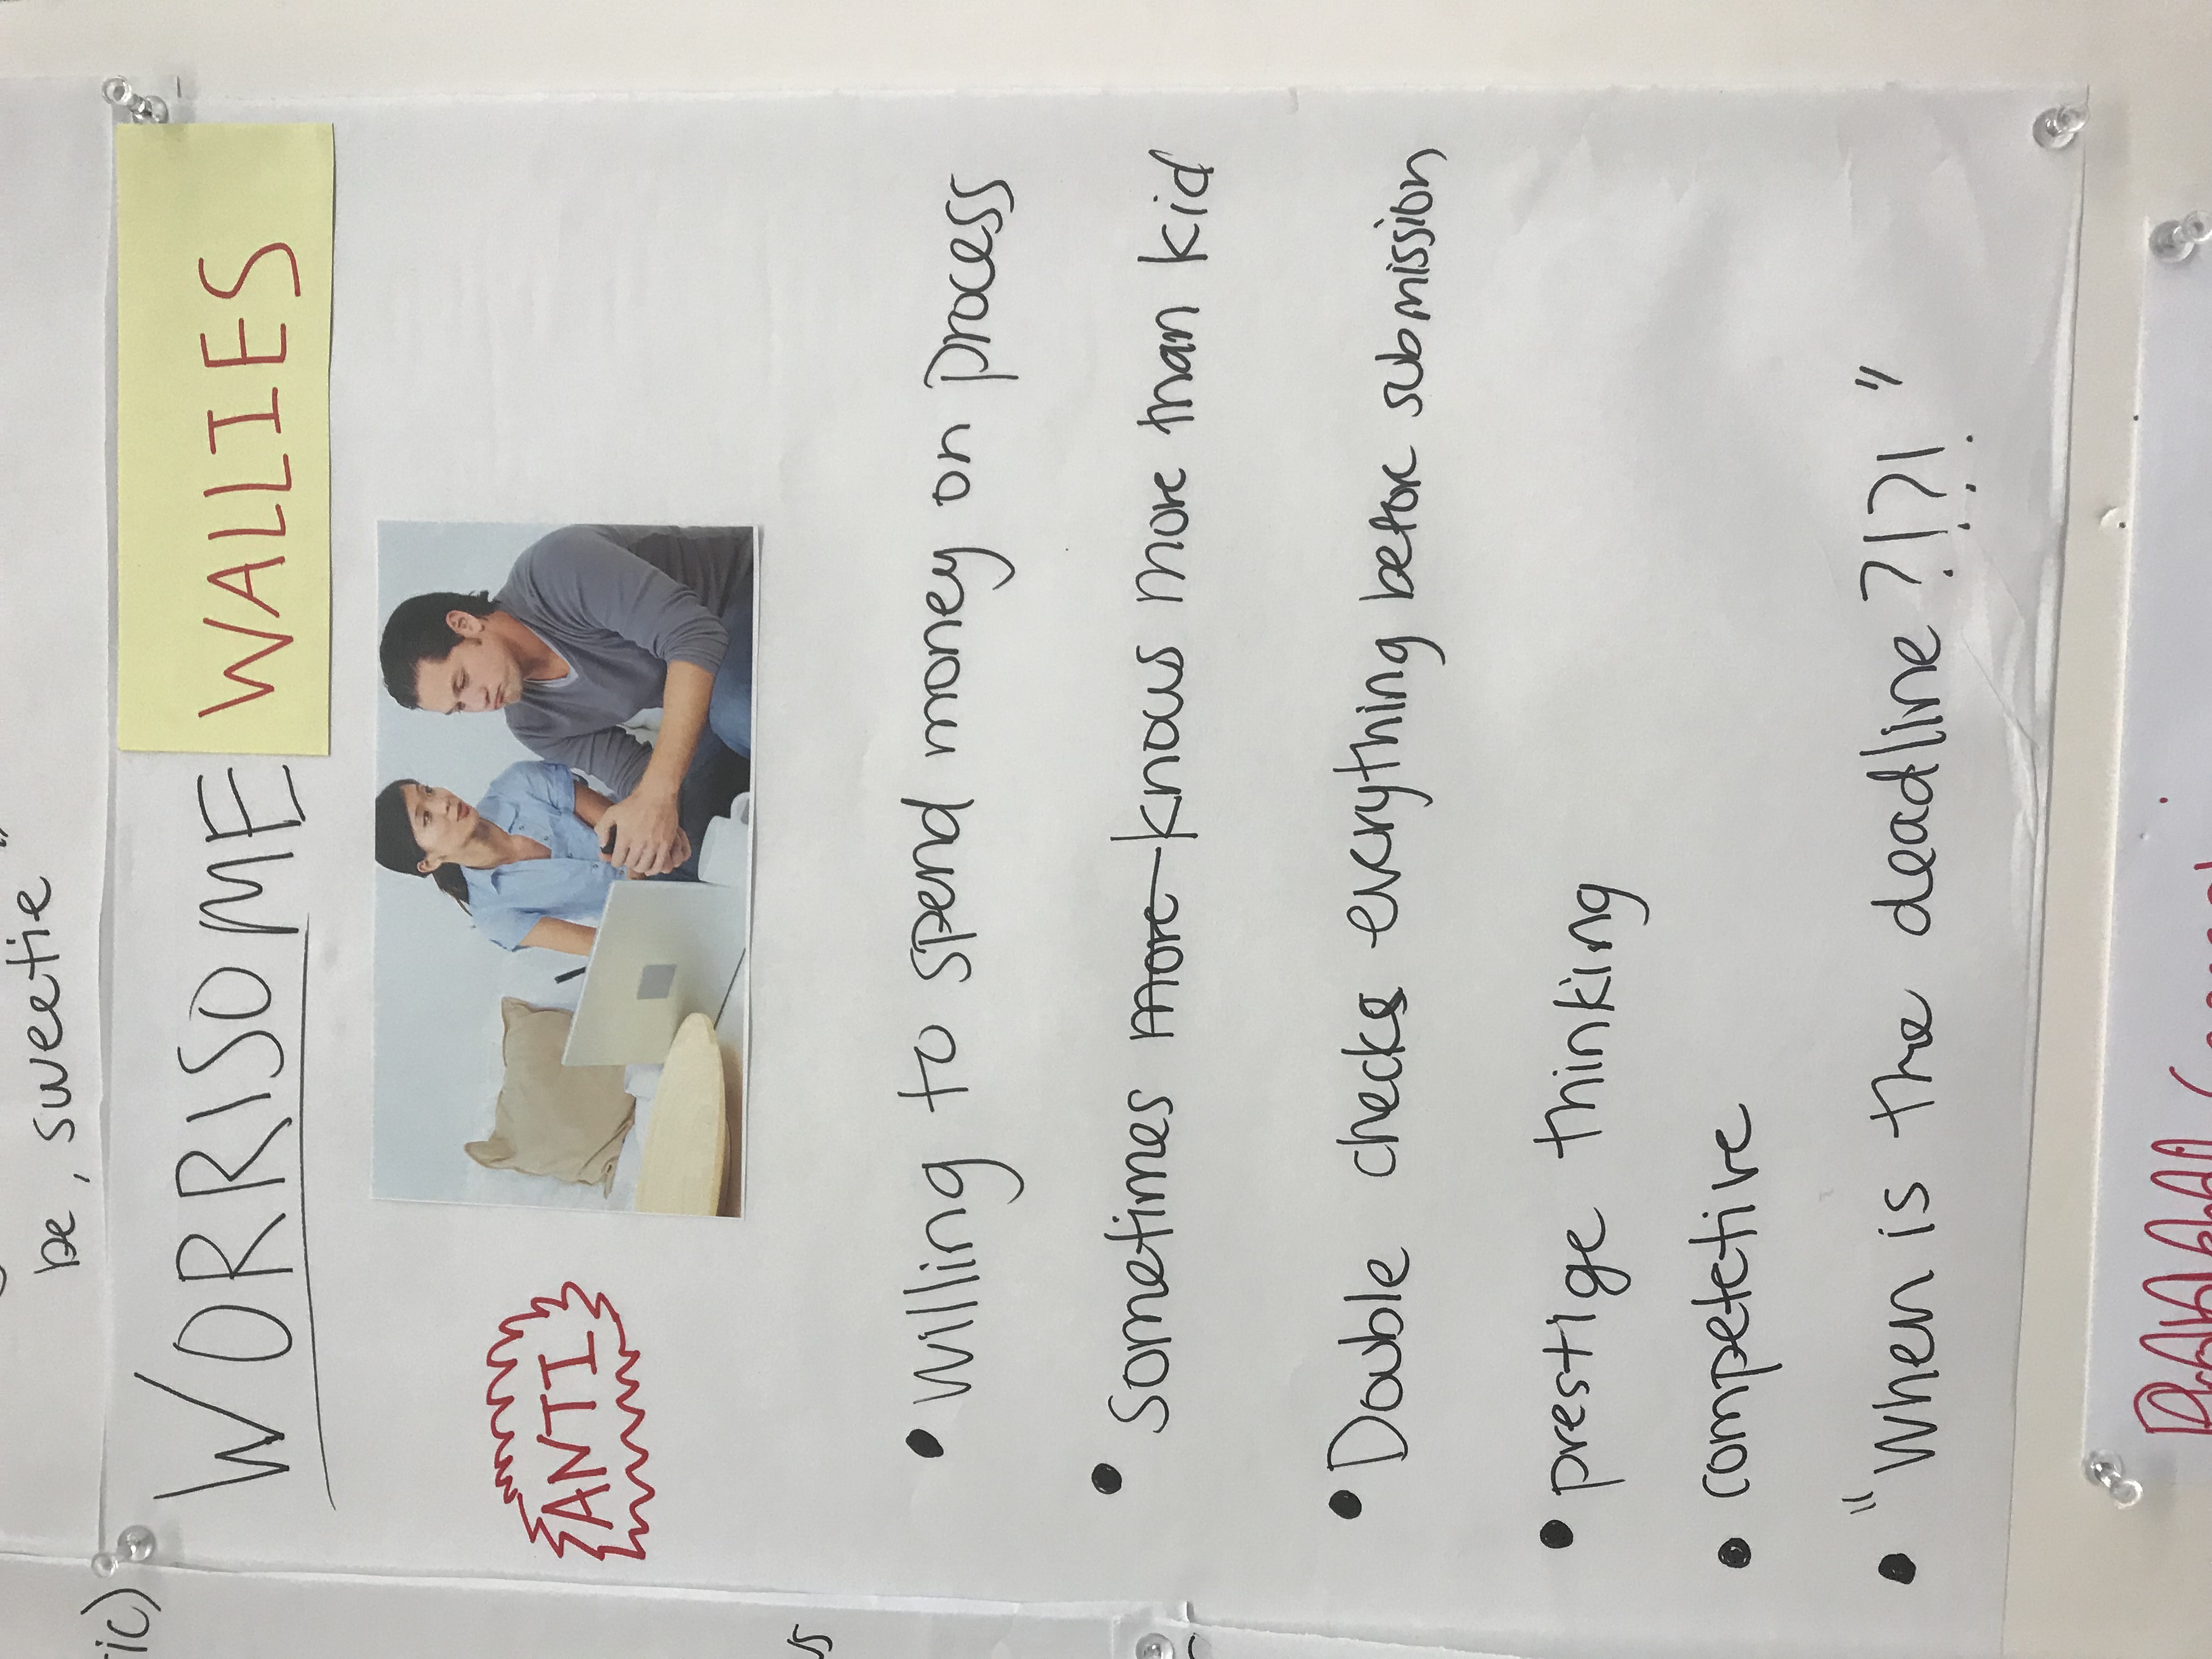 be, sweetie"
ic)
WORRISOME WALLIES
ANTI
us
• Willing to spend money on process
• Sometimes more knows more than kid
• Double checks everything before submission
• prestige thinking
• competetive
• "When is the deadline?!?!"